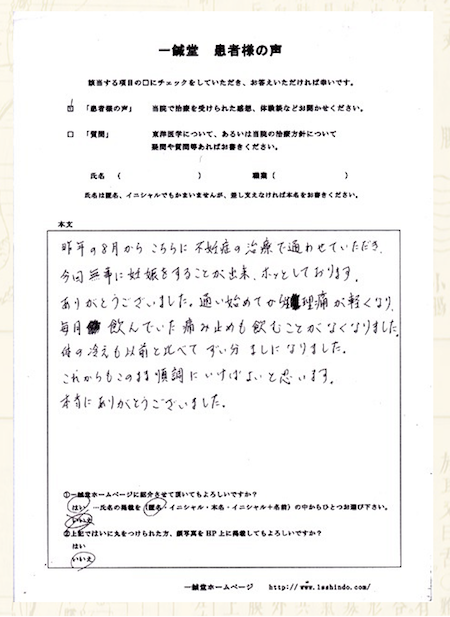 一鍼堂 患者様の声
該当する項目の□にチェックをしていただき、お答えいただければ幸いです。
☑ 「患者様の声」 当院で治療を受けられた感想、体験談などお聞かせください。
□ 「質問」 東洋医学について、あるいは当院の治療方針について
疑問や質問等あればお書きください。
氏名 ( ) 職業( )
氏名は匿名、イニシャルでもかまいませんが、差し支えなければ本名をお書きください。
本文
昨年の8月から こちらに 不妊症の 治療で通わせていただき、
今回 無事に 妊娠をすることが出来、ホッとしております。
ありがとうございました。通い始めてから 生理痛が軽くなり、
毎月 飲んでいた 痛み止めも 飲むことがなくなりました。
体の冷えも 以前と比べて ずい分 ましに なりました。
これからもこのまま 順調に いけばよいと思います。
本当に ありがとうございました。
①一鍼堂ホームページに紹介させて頂いてもよろしいですか?
はい ―氏名の掲載を (匿名・イニシャル・本名・イニシャル+名前) の中からひとつお選び下さい。
いいえ
②上記ではいに丸をつけられた方、顔写真をHP上に掲載してもよろしいですか?
はい
いいえ
一鍼堂ホームページ http://www.1sshindo.com/